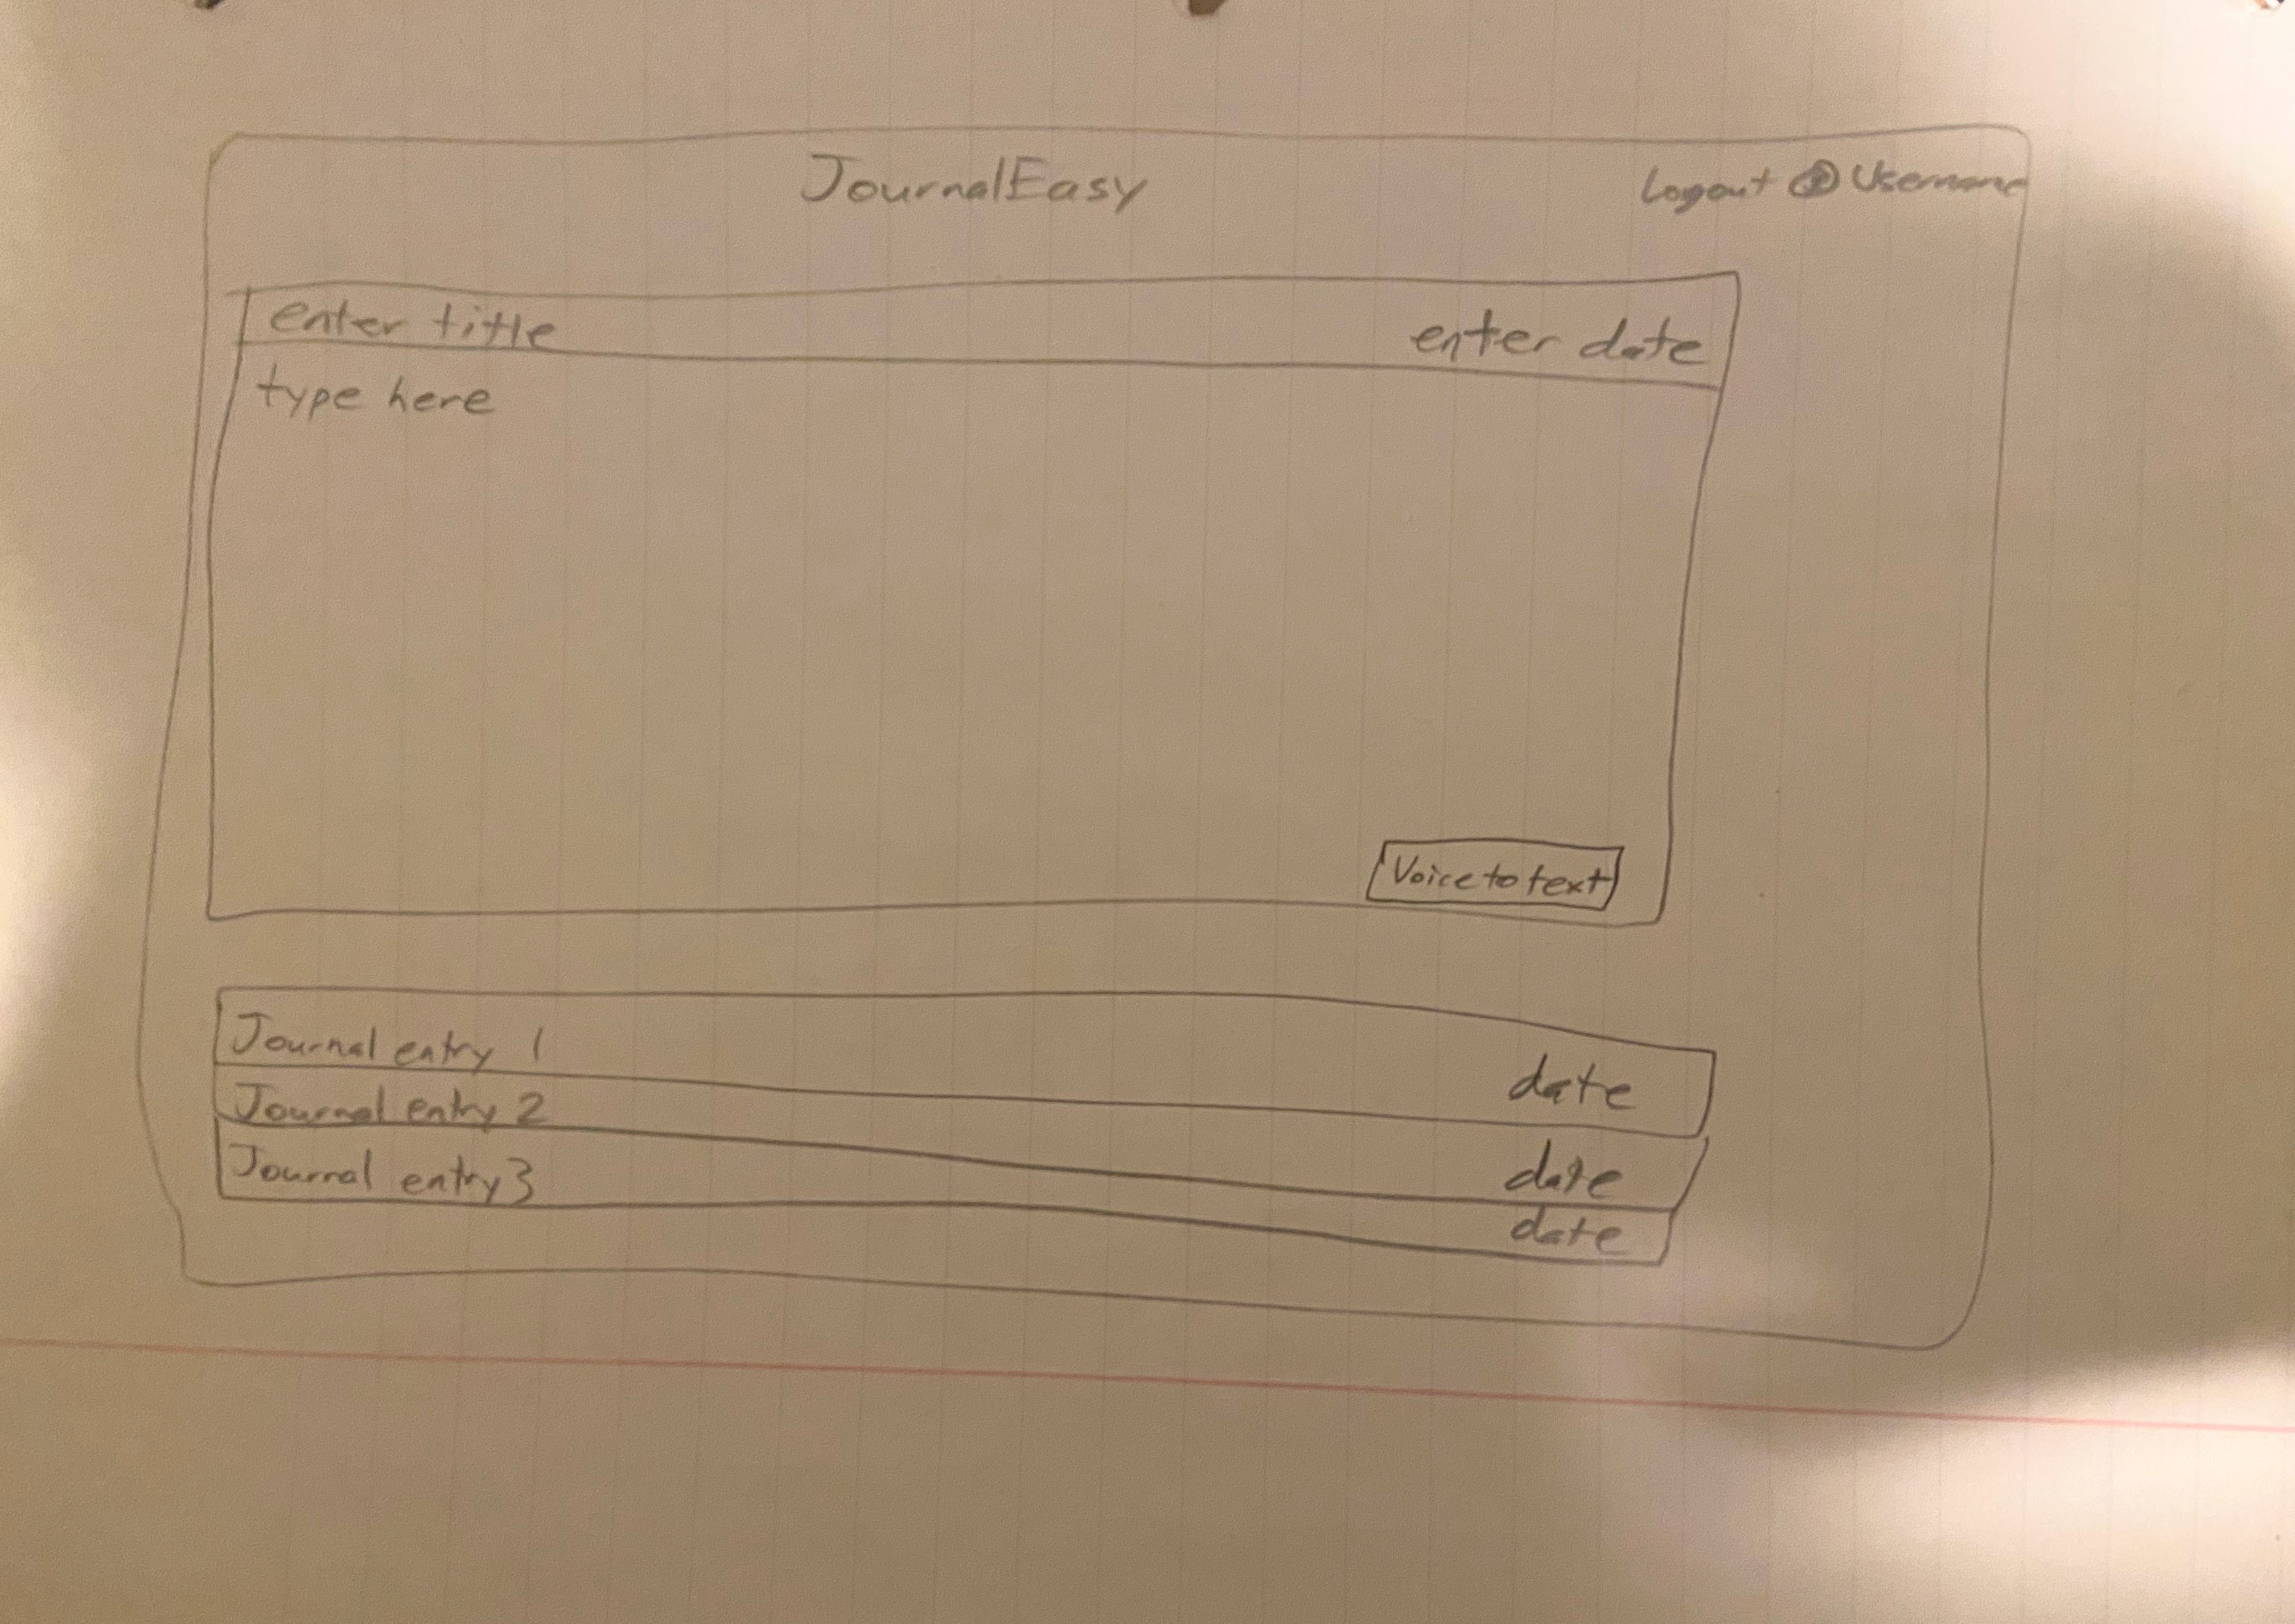 JournalEasy Logout Username
enter title enter date
type here
Voice to text
Journal entry 1 date
Journal entry 2 date
Journal entry 3 date